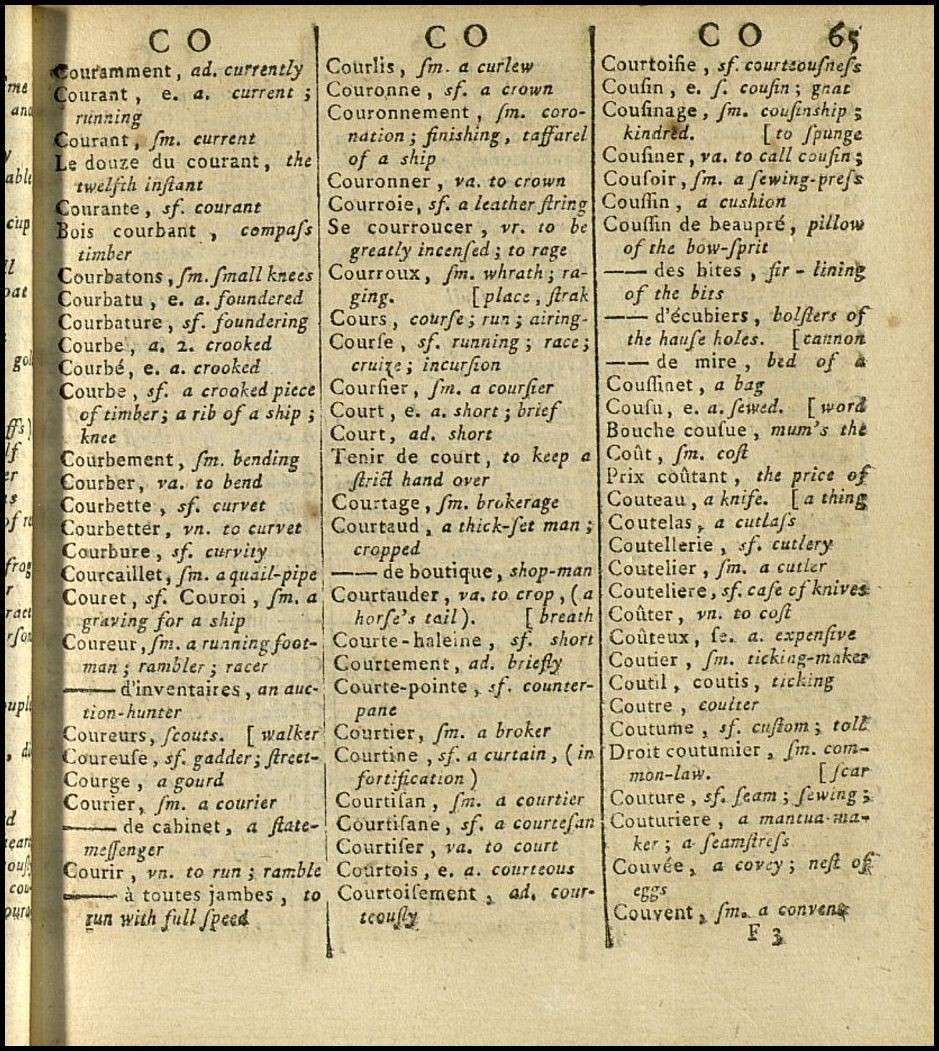 C O
Couramment, ad. currently
Courant, e. a. current;
running
Courant, ſm. current
Le douze du courant, the
twelfth inſtant
Courante, sf. courant
Bois courbant, compaſs
timber
Courbatons, ſm. ſmall knees
Courbatu, e. a. foundered
Courbature, sf. foundering
Courbe, a. 2. crooked
Courbé, e. a. crooked
Courbe, sf. a crooked piece
of timber; a rib of a ship;
knee
Courbement, ſm. bending
Courber, va. to bend
Courbette, sf. curvet
Courbetter, vn. to curvet
Courbure, sf. curvity
Courcaillet, ſm. a quail-pipe
Couret, sf. Couroi, ſm. a
graving for a ship
Coureur, ſm. a running foot-
man; rambler; racer
—— d'inventaires, an auc-
tion-hunter
Coureurs, ſcouts. [walker
Coureuſe, sf. gadder; ſtreet-
Courge, a gourd
Courier, ſm. a courier
—— de cabinet, a ſtate-
meſſenger
Courir, vn. to run; ramble
—— à toutes jambes, to
run with full ſpeed
C O
Courlis, ſm. a curlew
Couronne, sf. a crown
Couronnement, ſm. coro-
nation; finishing, taffarel
of a ship
Couronner, va. to crown
Courroie, sf. a leather ſtring
Se courroucer, vr. to be
greatly incenſed; to rage
Courroux, ſm. whrath; ra-
ging. [place, ſtrak
Cours, courſe; run; airing-
Courſe, sf. running; race;
cruize; incurſion
Courſier, ſm. a courſier
Court, e. a. short; brief
Court, ad. short
Tenir de court, to keep a
ſtrict hand over
Courtage, ſm. brokerage
Courtaud, a thick-ſet man;
cropped
—— de boutique, shop-man
Courtauder, va. to crop, (a
horſe's tail). [breath
Courte-haleine, sf. short
Courtement, ad. briefly
Courte-pointe, sf. counter-
pane
Courtier, ſm. a broker
Courtine, sf. a curtain, (in
fortification)
Courtiſan, ſm. a courtier
Courtiſane, sf. a courteſan
Courtiſer, va. to court
Courtois, e. a. courteous
Courtoiſement, ad. cour-
teouſly
C O 65
Courtoiſie, sf. courteouſneſs
Couſin, e. ſ. couſin; gnat
Couſinage, ſm. couſinship;
kindred. [to ſpunge
Couſiner, va. to call couſin;
Couſoir, ſm. a ſewing-preſs
Couſſin, a cushion
Couſſin de beaupré, pillow
of the bow-ſprit
—— des bites, fir-lining
of the bits
—— d'écubiers, bolſters of
the hauſe holes. [cannon
—— de mire, bed of a
Couſſinet, a bag
Couſu, e. a. ſewed. [word
Bouche couſue, mum's the
Coût, ſm. coſt
Prix coûtant, the price of
Couteau, a knife. [a thing
Coutelas, a cutlaſs
Coutellerie, sf. cutlery
Coutelier, ſm. a cutler
Couteliere, sf. caſe of knives
Coûter, vn. to coſt
Coûteux, ſe. a. expenſive
Coutier, ſm. ticking-maker
Coutil, coutis, ticking
Coutre, coulter
Coutume, sf. cuſtom; toll
Droit coutumier, ſm. com-
mon-law. [ſcar
Couture, sf. ſeam; ſewing;
Couturiere, a mantua-ma-
ker; a ſeamſtreſs
Couvée, a covey; neſt of
eggs
Couvent, ſm. a convent
F 3